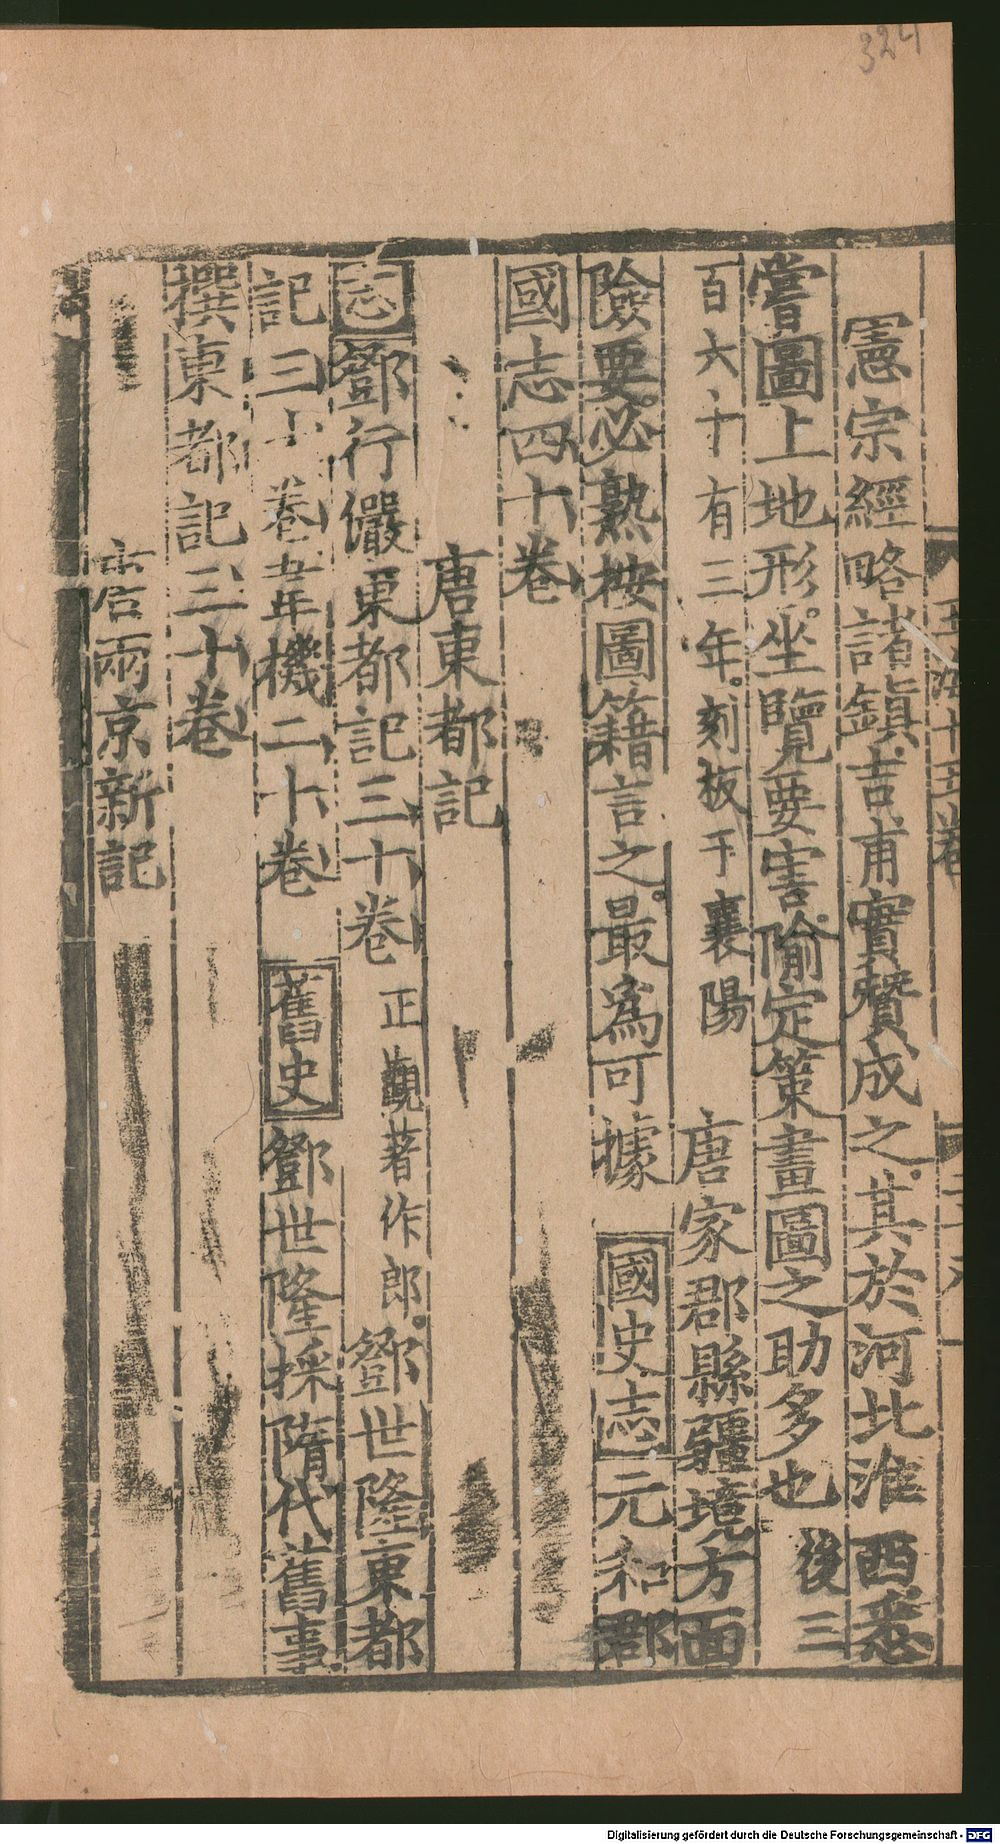 324
玉海十五卷
憲宗經略諸鎮吉甫實贊成之其於河北淮西悉
嘗圖上地形坐覽要害隃定策畫圖之助多也後三
百六十有三年刻板于襄陽 唐家郡縣疆境方面
險要必熟按圖籍言之最爲可據 國史志 元和郡
國志四十卷
唐東都記
志 鄧行儼東都記三十卷 正觀著作郎 鄧世隆東都
記三十卷 韋機二十卷 舊史 鄧世隆採隋代舊事
撰東都記三十卷
唐兩京新記
Digitalisierung gefördert durch die Deutsche Forschungsgemeinschaft - DFG